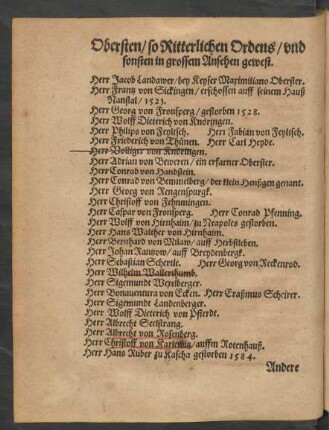 Obersten/ so Ritterlichen Ordens/ vnd
sonsten in grossem Ansehen gewest.
Herr Jacob Landawer/ bey Keyser Maximilians Oberster.
Herr Frantz von Sickingen/ erschossen auff seinem Hauß
Nanstal/ 1523.
Herr Georg von Fronsperg/ gestorben 1528.
Herr Wolff Dieterich von Knöringen.
Herr Philips von Feylisch. Herr Fabian von Feylisch.
Herr Friederich von Thünen. Herr Carl Heydt.
Herr Wolliger von Knöringen.
Herr Adrian von Beveren/ ein erfarner Oberster.
Herr Conrad von Handstein.
Herr Conrad von Bemmelberg/ der klein Henßgen genant.
Herr Georg von Rengenspurgk.
Herr Christoff von Fehnmingen.
Herr Caspar von Fronsperg. Herr Conrad Pfenning.
Herr Wolff von Hirnhaim/ zu Neapolts gestorben.
Herr Hans Walther von Hirnhaim.
Herr Bernhard von Milaw/ auff Herbsleben.
Herr Johan Rantzow/ auff Breydenbergk.
Herr Sebastian Schertle. Herr Georg von Reckenrod.
Herr Wilhelm Wallerthumb.
Herr Sigemundt Wexelberger.
Herr Bonauentura von Ecken. Herr Eraßmus Scheirer.
Herr Sigemund Landenberger.
Herr Wolff Dieterich von Pferdt.
Herr Albrecht Seelstrang.
Herr Albrecht von Rosenberg.
Herr Christoff von / auffm Rotenhauß.
Herr Hans Ruber zu Kascha gestorben 1584.
Andere